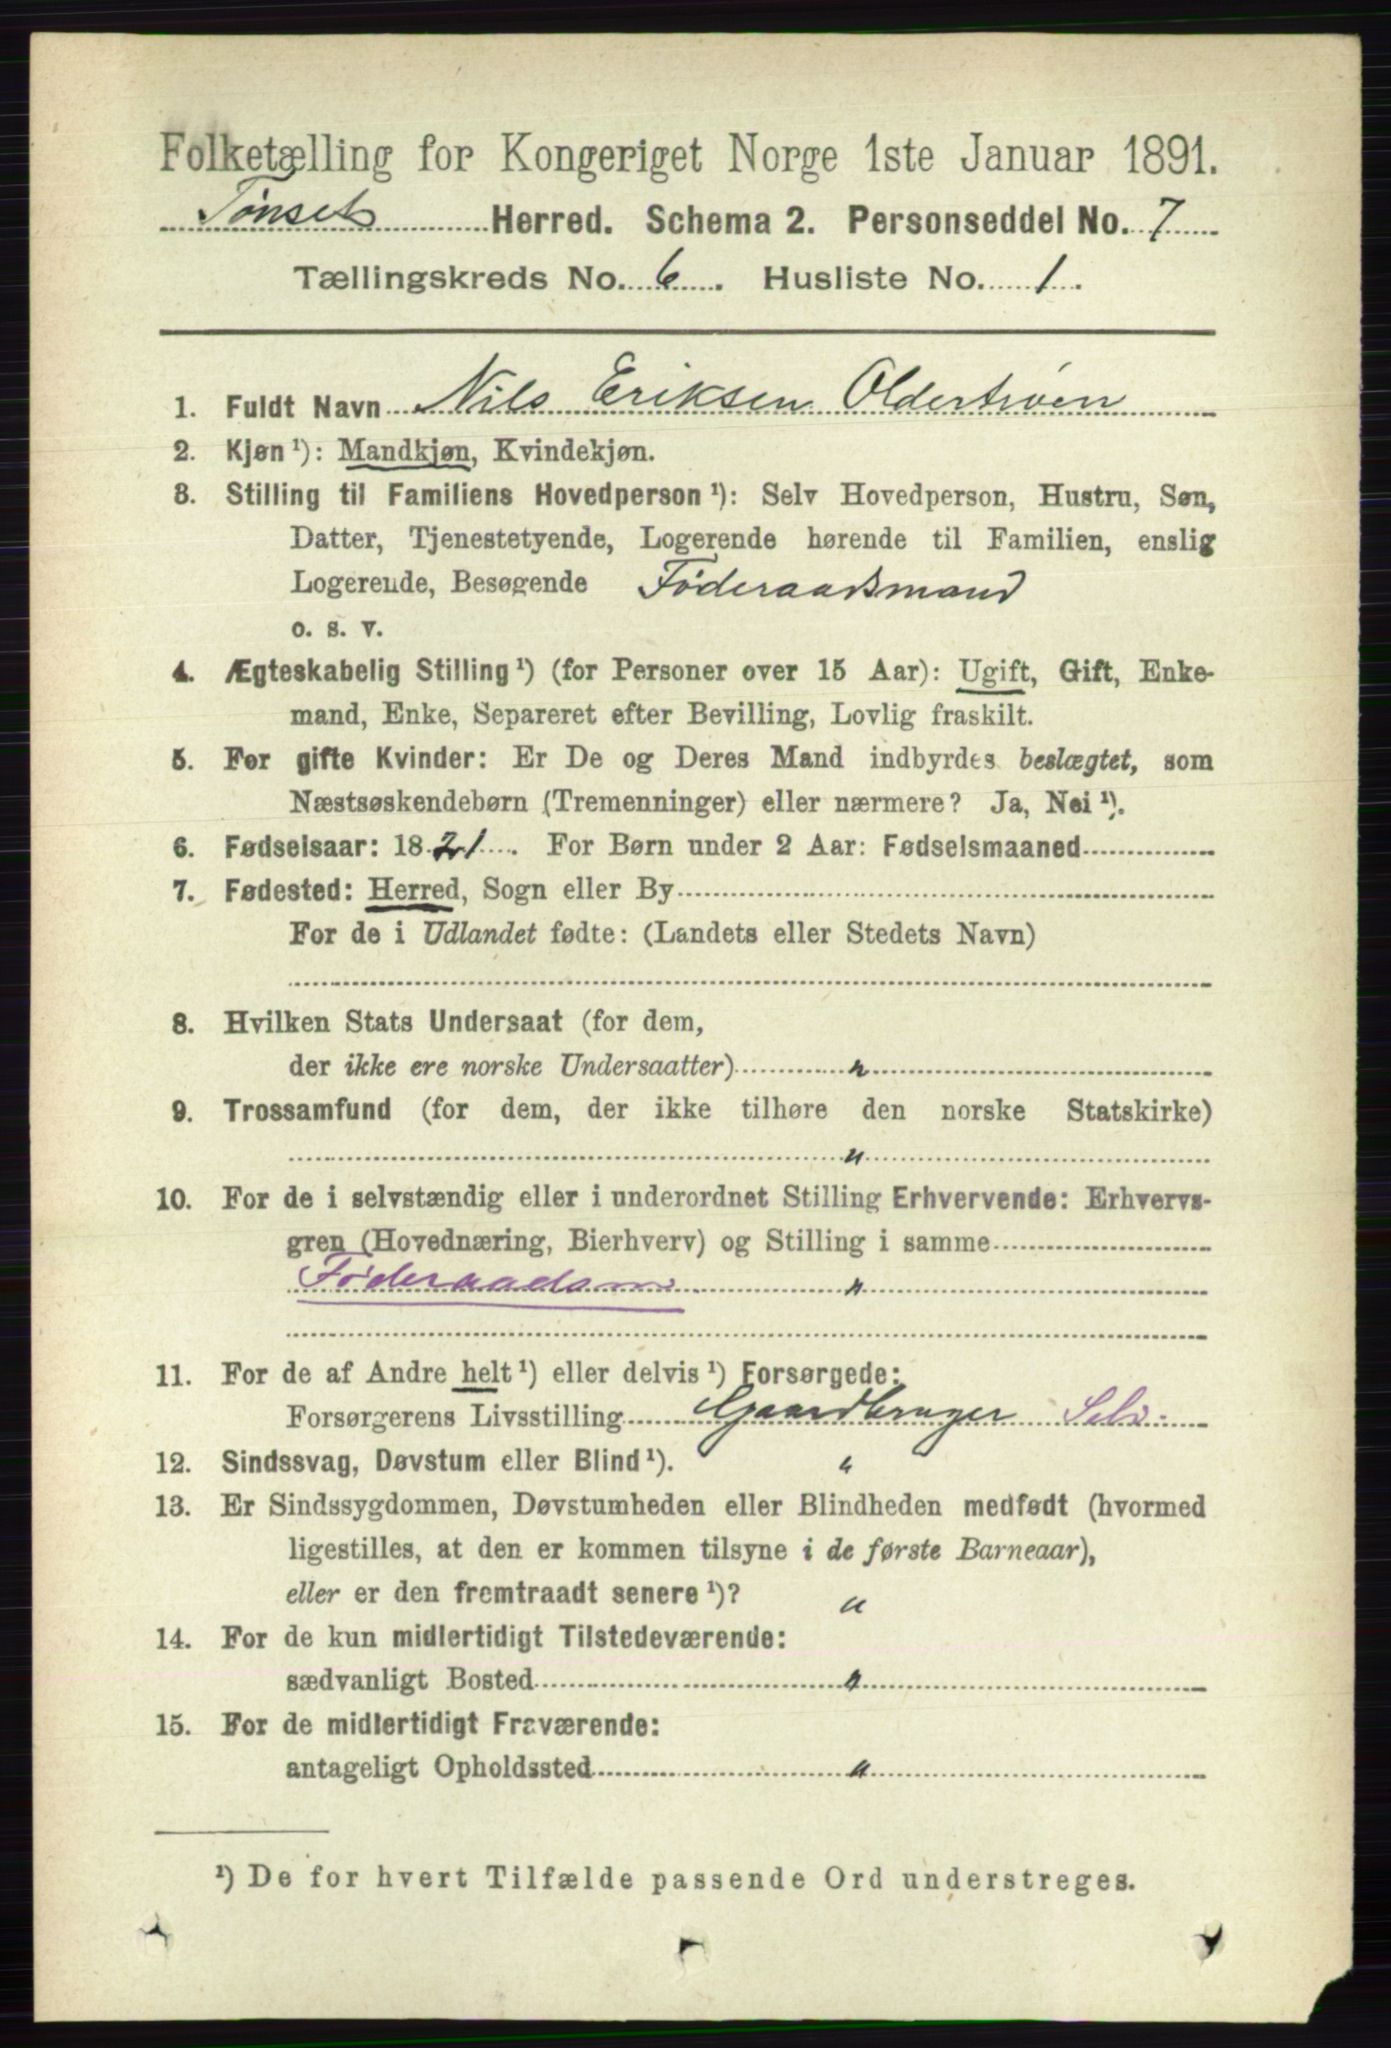 Folketælling for Kongeriget Norge 1ste Januar 1891.
Tønset Herred. Schema 2. Personseddel No. 7
Tællingskreds No. 6. Husliste No. 1.
1. Fuldt Navn Nils Eriksen Oldertrøen
2. Kjøn¹): Mandkjøn, Kvindekjøn.
3. Stilling til Familiens Hovedperson¹): Selv Hovedperson, Hustru, Søn,
Datter, Tjenestetyende, Logerende hørende til Familien, enslig
Logerende, Besøgende Føderaadsmand
o. s. v.
4. Ægteskabelig Stilling¹) (for Personer over 15 Aar): Ugift, Gift, Enke-
mand, Enke, Separeret efter Bevilling, Lovlig fraskilt.
5. For gifte Kvinder: Er De og Deres Mand indbyrdes beslægtet, som
Næstsøskendebørn (Tremenninger) eller nærmere? Ja, Nei¹).
6. Fødselsaar: 1821. For Børn under 2 Aar: Fødselsmaaned
7. Fødested: Herred, Sogn eller By
For de i Udlandet fødte: (Landets eller Stedets Navn)
8. Hvilken Stats Undersaat (for dem,
der ikke ere norske Undersaatter) "
9. Trossamfund (for dem, der ikke tilhøre den norske Statskirke)
"
10. For de i selvstændig eller i underordnet Stilling Erhvervende: Erhvervs-
gren (Hovednæring, Bierhverv) og Stilling i samme
Føderaadsm. "
11. For de af Andre helt¹) eller delvis¹) Forsørgede:
Forsørgerens Livsstilling Gaardbruger Selv.
12. Sindssvag, Døvstum eller Blind¹). "
13. Er Sindssygdommen, Døvstumheden eller Blindheden medfødt (hvormed
ligestilles, at den er kommen tilsyne i de første Barneaar),
eller er den fremtraadt senere¹)? "
14. For de kun midlertidigt Tilstedeværende:
sædvanligt Bosted "
15. For de midlertidigt Fraværende:
antageligt Opholdssted "
¹) De for hvert Tilfælde passende Ord understreges.